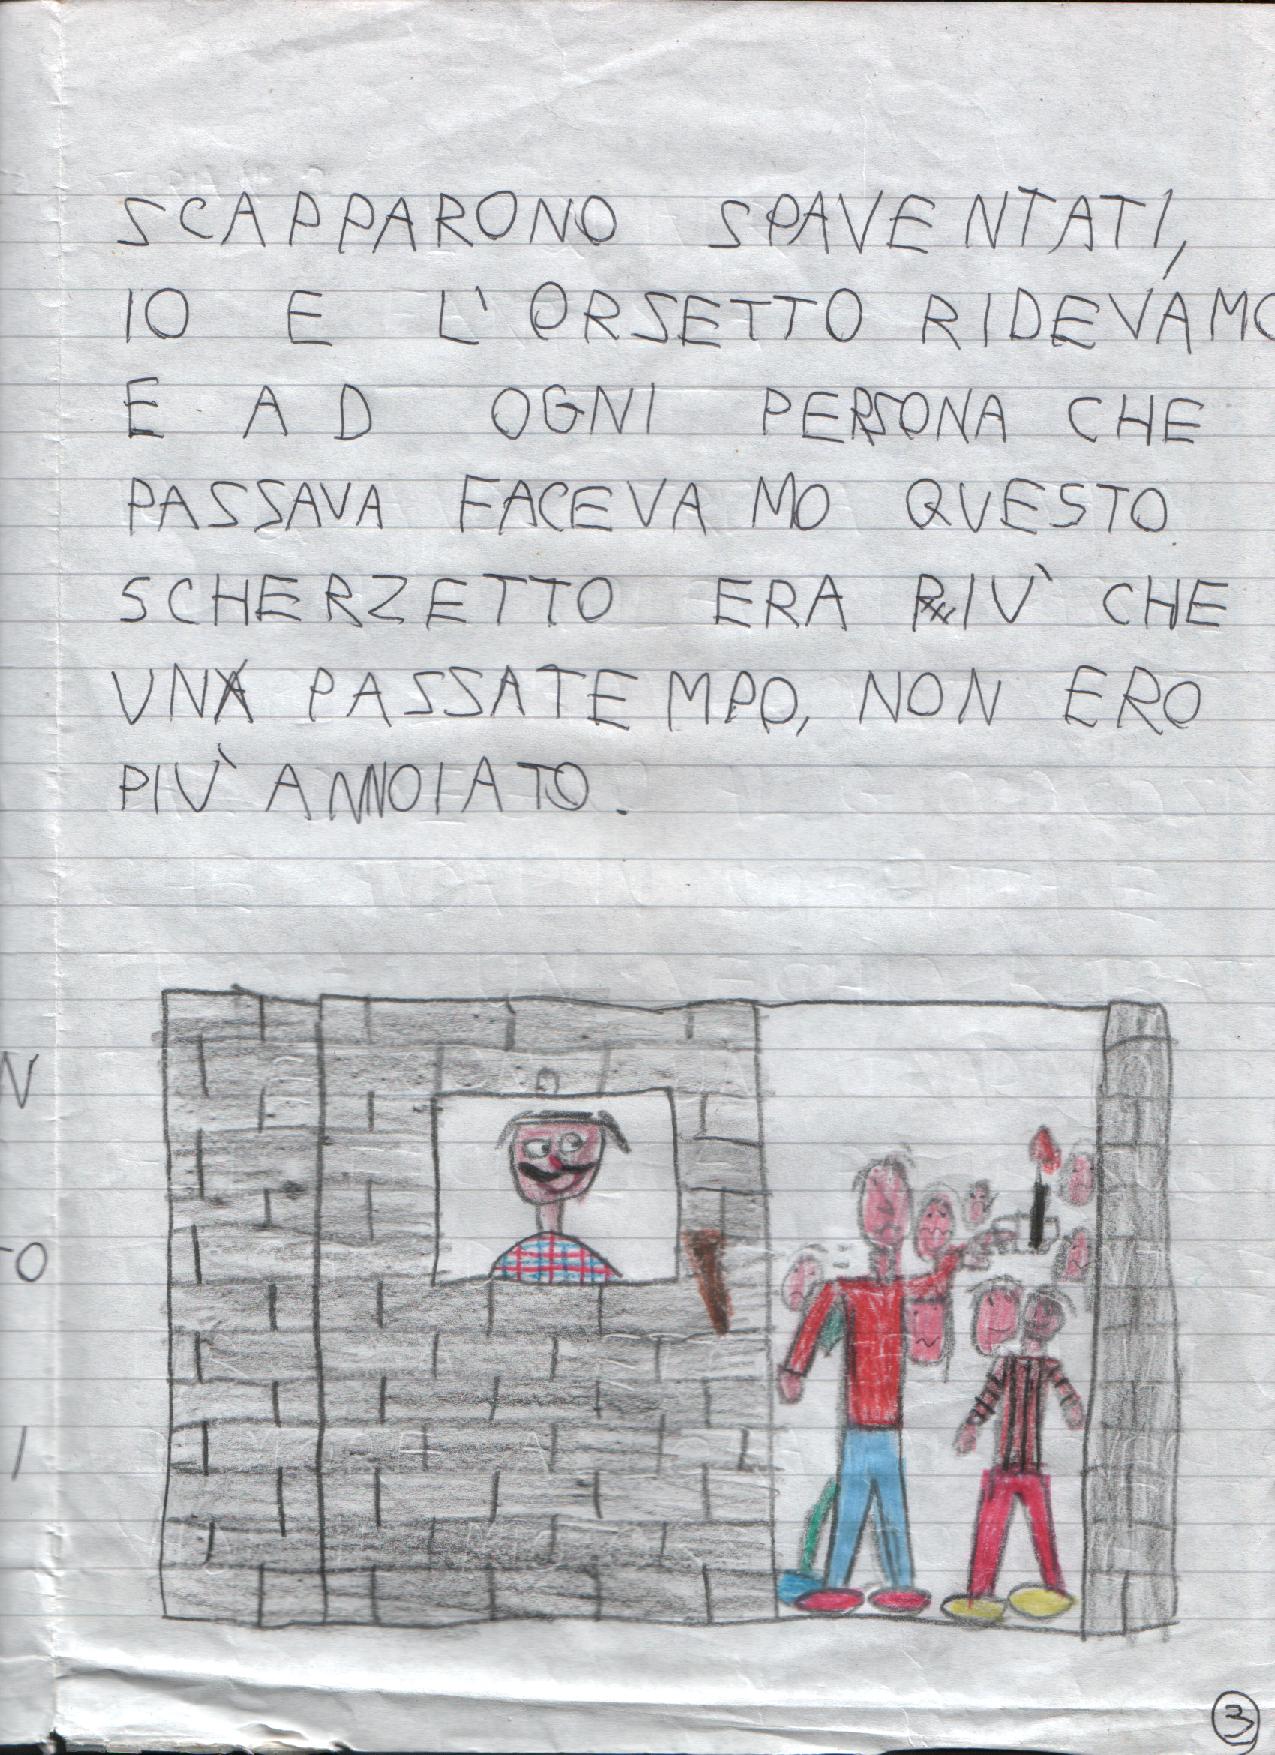 SCAPPARONO SPAVENTATI,
IO E L'ORSETTO RIDEVAMO
E AD OGNI PERSONA CHE
PASSAVA FACEVAMO QUESTO
SCHERZETTO ERA PIÙ CHE
UN PASSATEMPO, NON ERO
PIÙ ANNOIATO.
N
TO
I
3